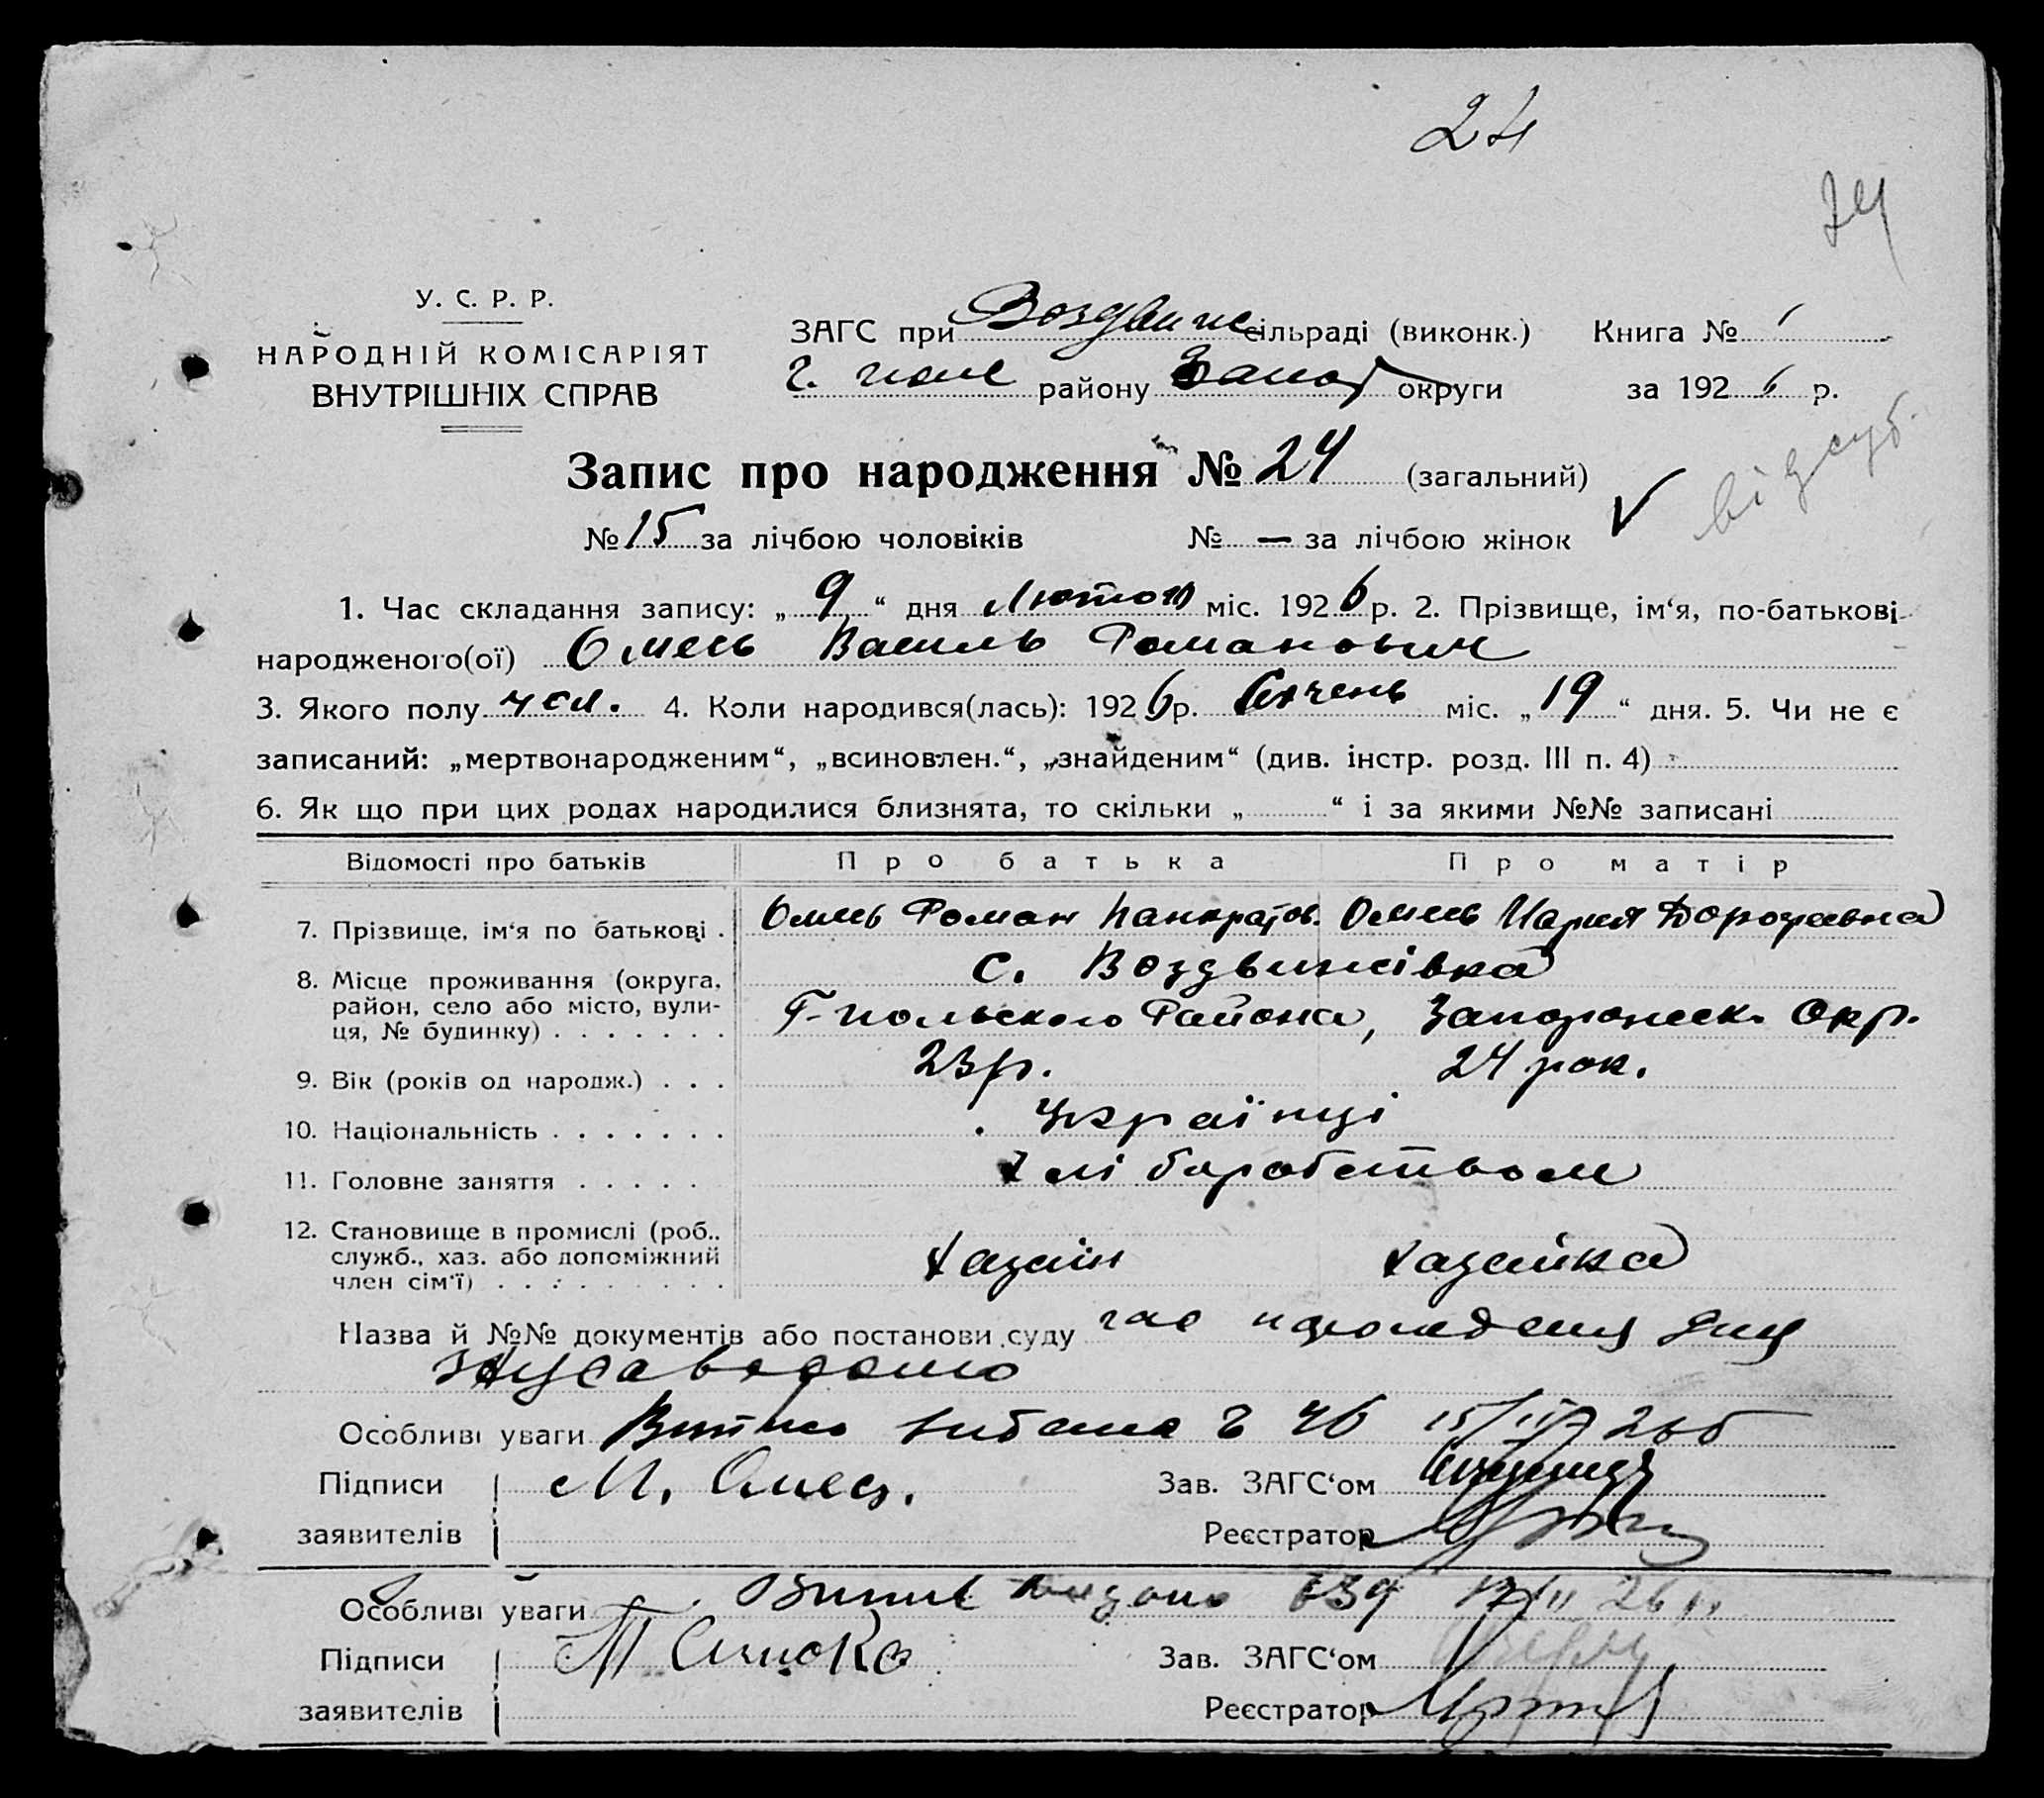 24
24
У. С. Р. Р.
НАРОДНІЙ КОМІСАРІЯТ
ВНУТРІШНІХ СПРАВ
ЗАГС при Воздвиж сільраді (виконк.) Книга № 1
Г. поле району Запор округи за 1926 р.
відсут.
Запис про народження № 24 (загальний)
№ 15 за лічбою чоловіків № — за лічбою жінок
1. Час складання запису: „ 9 “ дня Лютого міс. 1926 р. 2. Прізвище, ім‘я, по-батькові
народженого(ої) Омесь Василь Романович
3. Якого полу чол. 4. Коли народився(лась): 1926 р. Січень міс. „ 19 “ дня. 5. Чи не є
записаний: „мертвонародженим“, „всиновлен.“, „знайденим“ (див. інстр. розд. III п. 4)
6. Як що при цих родах народилися близнята, то скільки „ “ і за якими №№ записані
Відомості про батьків Про батька Про матір
7. Прізвище, ім‘я по батькові . Омесь Роман Панкратов. Омесь Мария Дорофеевна
8. Місце проживання (округа, район, село або місто, вулиця, № будинку) . . . . . . . с. Воздвижівка
Г-польского Района, Запорожск. Окр.
9. Вік (років од народж.) . . . 23 р. 24 рок.
10. Національність . . . . . . . Українці
11. Головне заняття . . . . . Хліборобством
12. Становище в промислі (роб., служб., хаз. або допоміжний член сім‘ї) . . . . . . . . . Хазаін Хазайка
Назва й №№ документів або постанови суду
Особливі уваги
Підписи М. Омесь. Зав. ЗАГС‘ом
заявителів Реєстратор
Особливі уваги
Підписи Зав. ЗАГС‘ом
заявителів Реєстратор